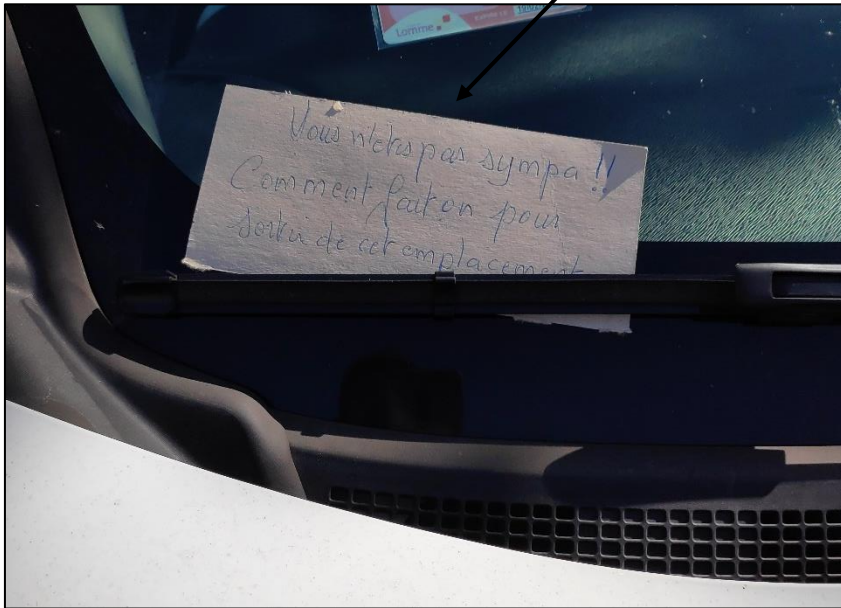 Lomme
Vous n'etes pas sympa !!
Comment fait on pour
sortir de cet emplacement